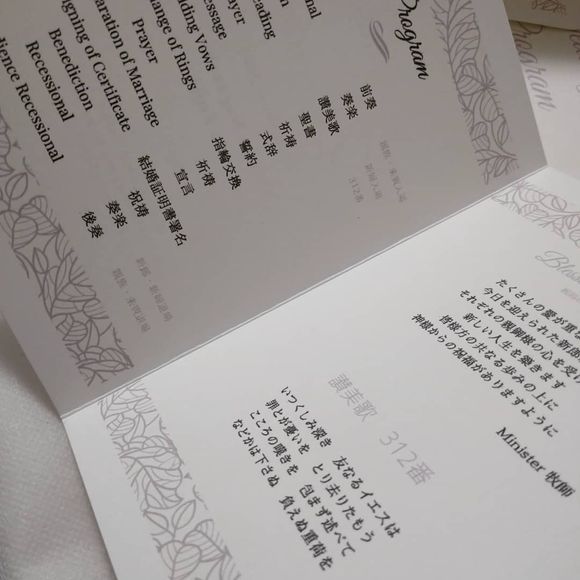 Program
sional
eading
rayer
essage
dding Vows
hange of Rings
Prayer
aration of Marriage
igning of Certificate
Benediction
Recessional
dience Recessional
前奏
奏楽
讃美歌 312番
聖書
祈祷
式辞
誓約
指輪交換
祈祷
宣言
結婚証明書署名
祝祷
奏楽
後奏
Program
たくさんの愛が重な
今日を迎えられた新
それぞれの親御様の心を受
新しい人生を築きます
皆様方の共なる歩みの上に
神様からの祝福がありますように
Minister 牧師
讃美歌 312番
いつくしみ深き 友なるイエスは
罪とが憂いを とり去りたもう
こころの嘆きを 包まず述べて
などかは下さぬ 負えぬ重荷を